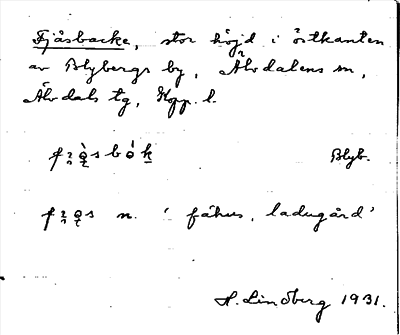 Fjåsbacke, stor höjd i östkanten
av Blybergs by, Älvdalens sn,
Älvdals tg, Kopp. l.
Blyb.
n. 'fähus, ladugård'
H. Lindberg 1931.